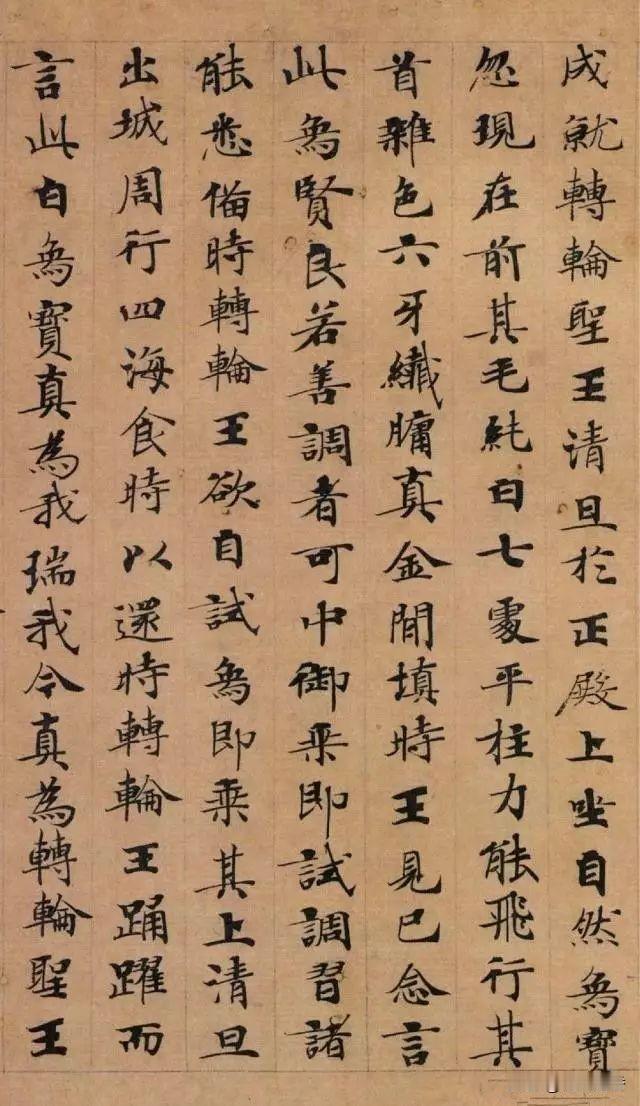 成就轉輪聖王清旦於正殿上坐自然烏寶
忽現在前其毛純白七處平柱力能飛行其
首雜色六牙纖𦟛真金間填時王見已念言
此烏賢良若善調者可中御乘即試調習諸
能悉備時轉輪王欲自試烏即乘其上清旦
出城周行四海食時以還時轉輪王踊躍而
言此白烏寶真為我瑞我今真為轉輪聖王